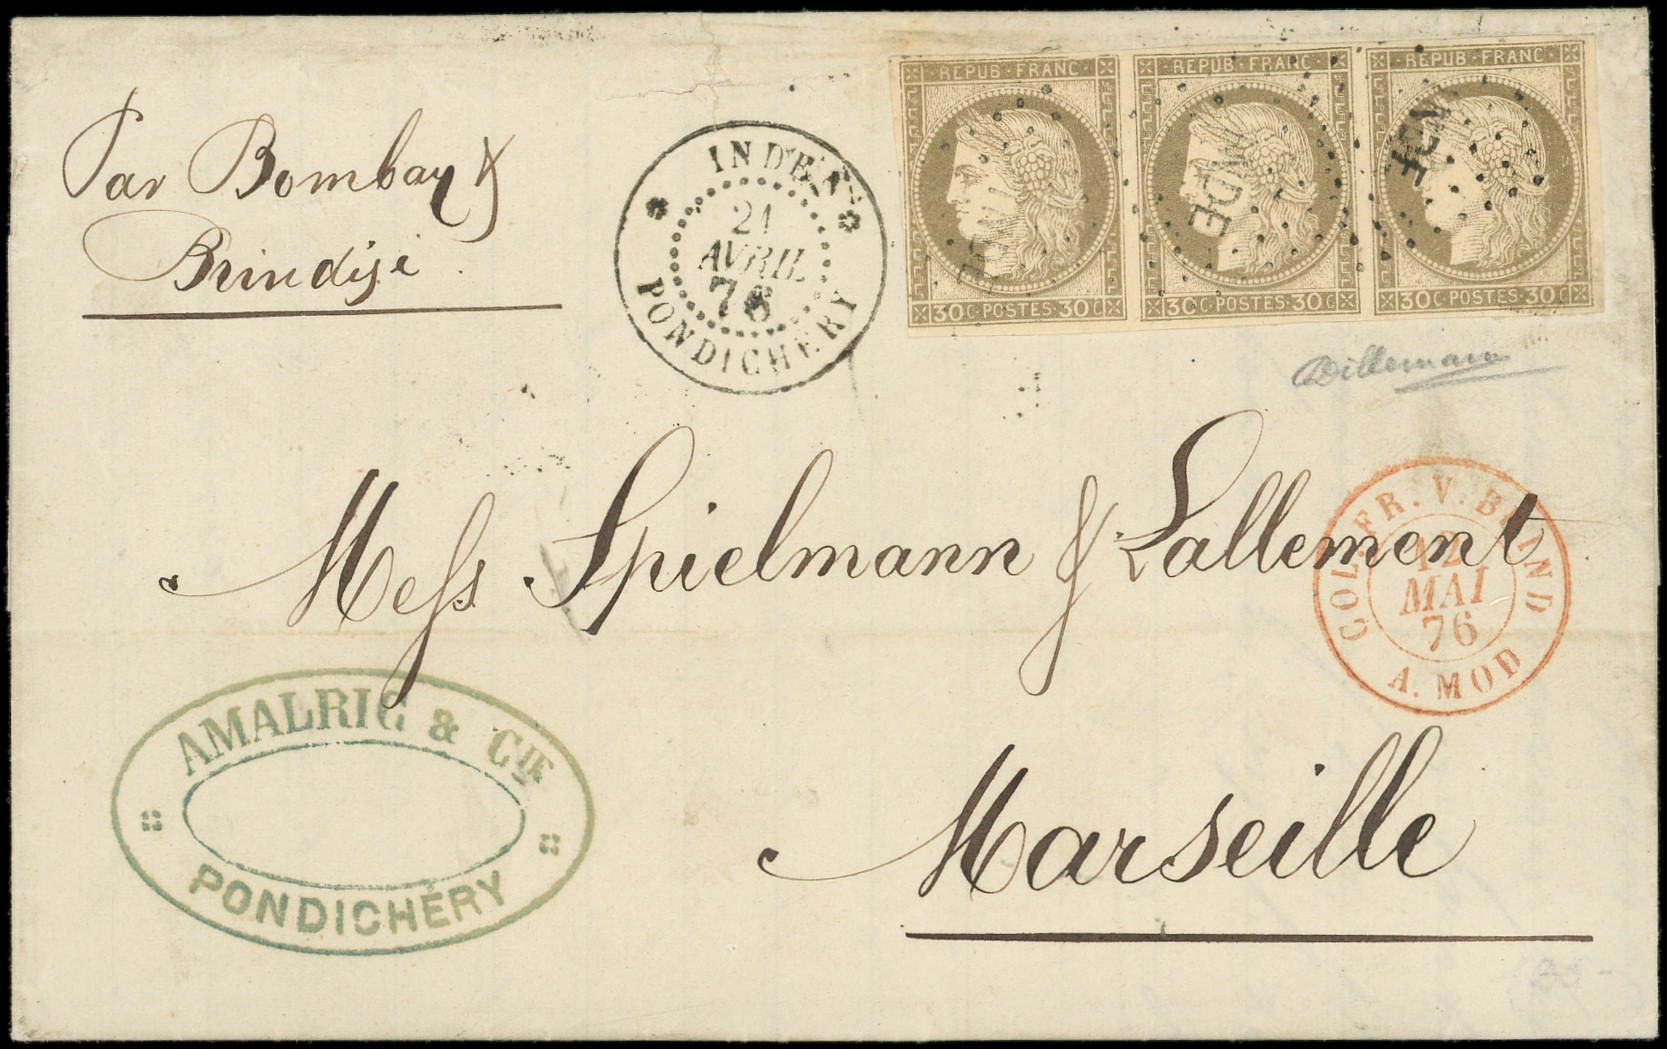 Par Bombay &
Brindisi
INDE
21
AVRIL
76
PONDICHERY
REPUB · FRANC
30 C · POSTES · 30 C
REPUB · FRANC
30 C · POSTES · 30 C
REPUB · FRANC
30 C · POSTES · 30 C
INDE
INDE
INDE
Dillemann
Mess Spielmann & Lallement
COL. FR. V. BRIND
12
MAI
76
A. MOD
AMALRIC & CIE
PONDICHÉRY
Marseille